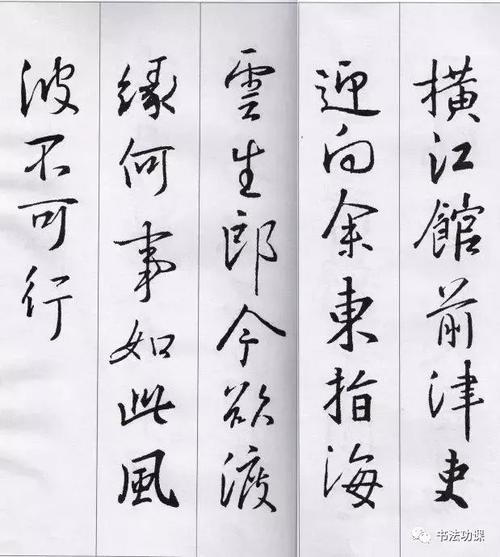 橫江館前津吏
迎向余東指海
雲生郎今欲渡
緣何事如此風
波不可行
书法功课